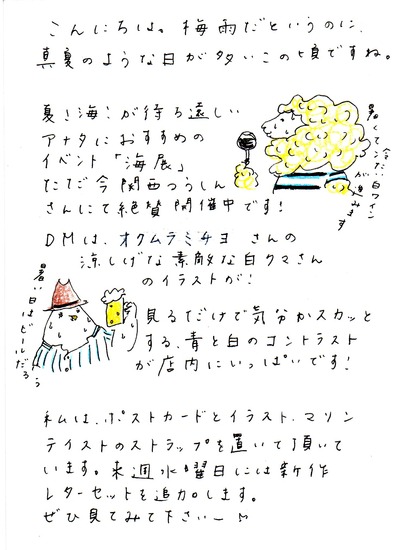 こんにちは。梅雨だというのに、
真夏のような日が多いこの頃ですね。
夏!海!が待ち遠しい
アナタにおすすめの
イベント「海展」
ただ今関西つうしん
さんにて絶賛開催中です!
暑くてシだ白ワイン
が進みます
DMは、オクムラミチヨ さんの
涼しげな素敵な白クマさん
のイラストが!
暑い日はビールだろう
見るだけで気分がスカッと
する、青と白のコントラスト
が店内にいっぱいです!
私は、ポストカードとイラスト、マリン
テイストのストラップを置いて頂いて
います。来週水曜日には新作
レターセットを追加します。
ぜひ見てみて下さいー